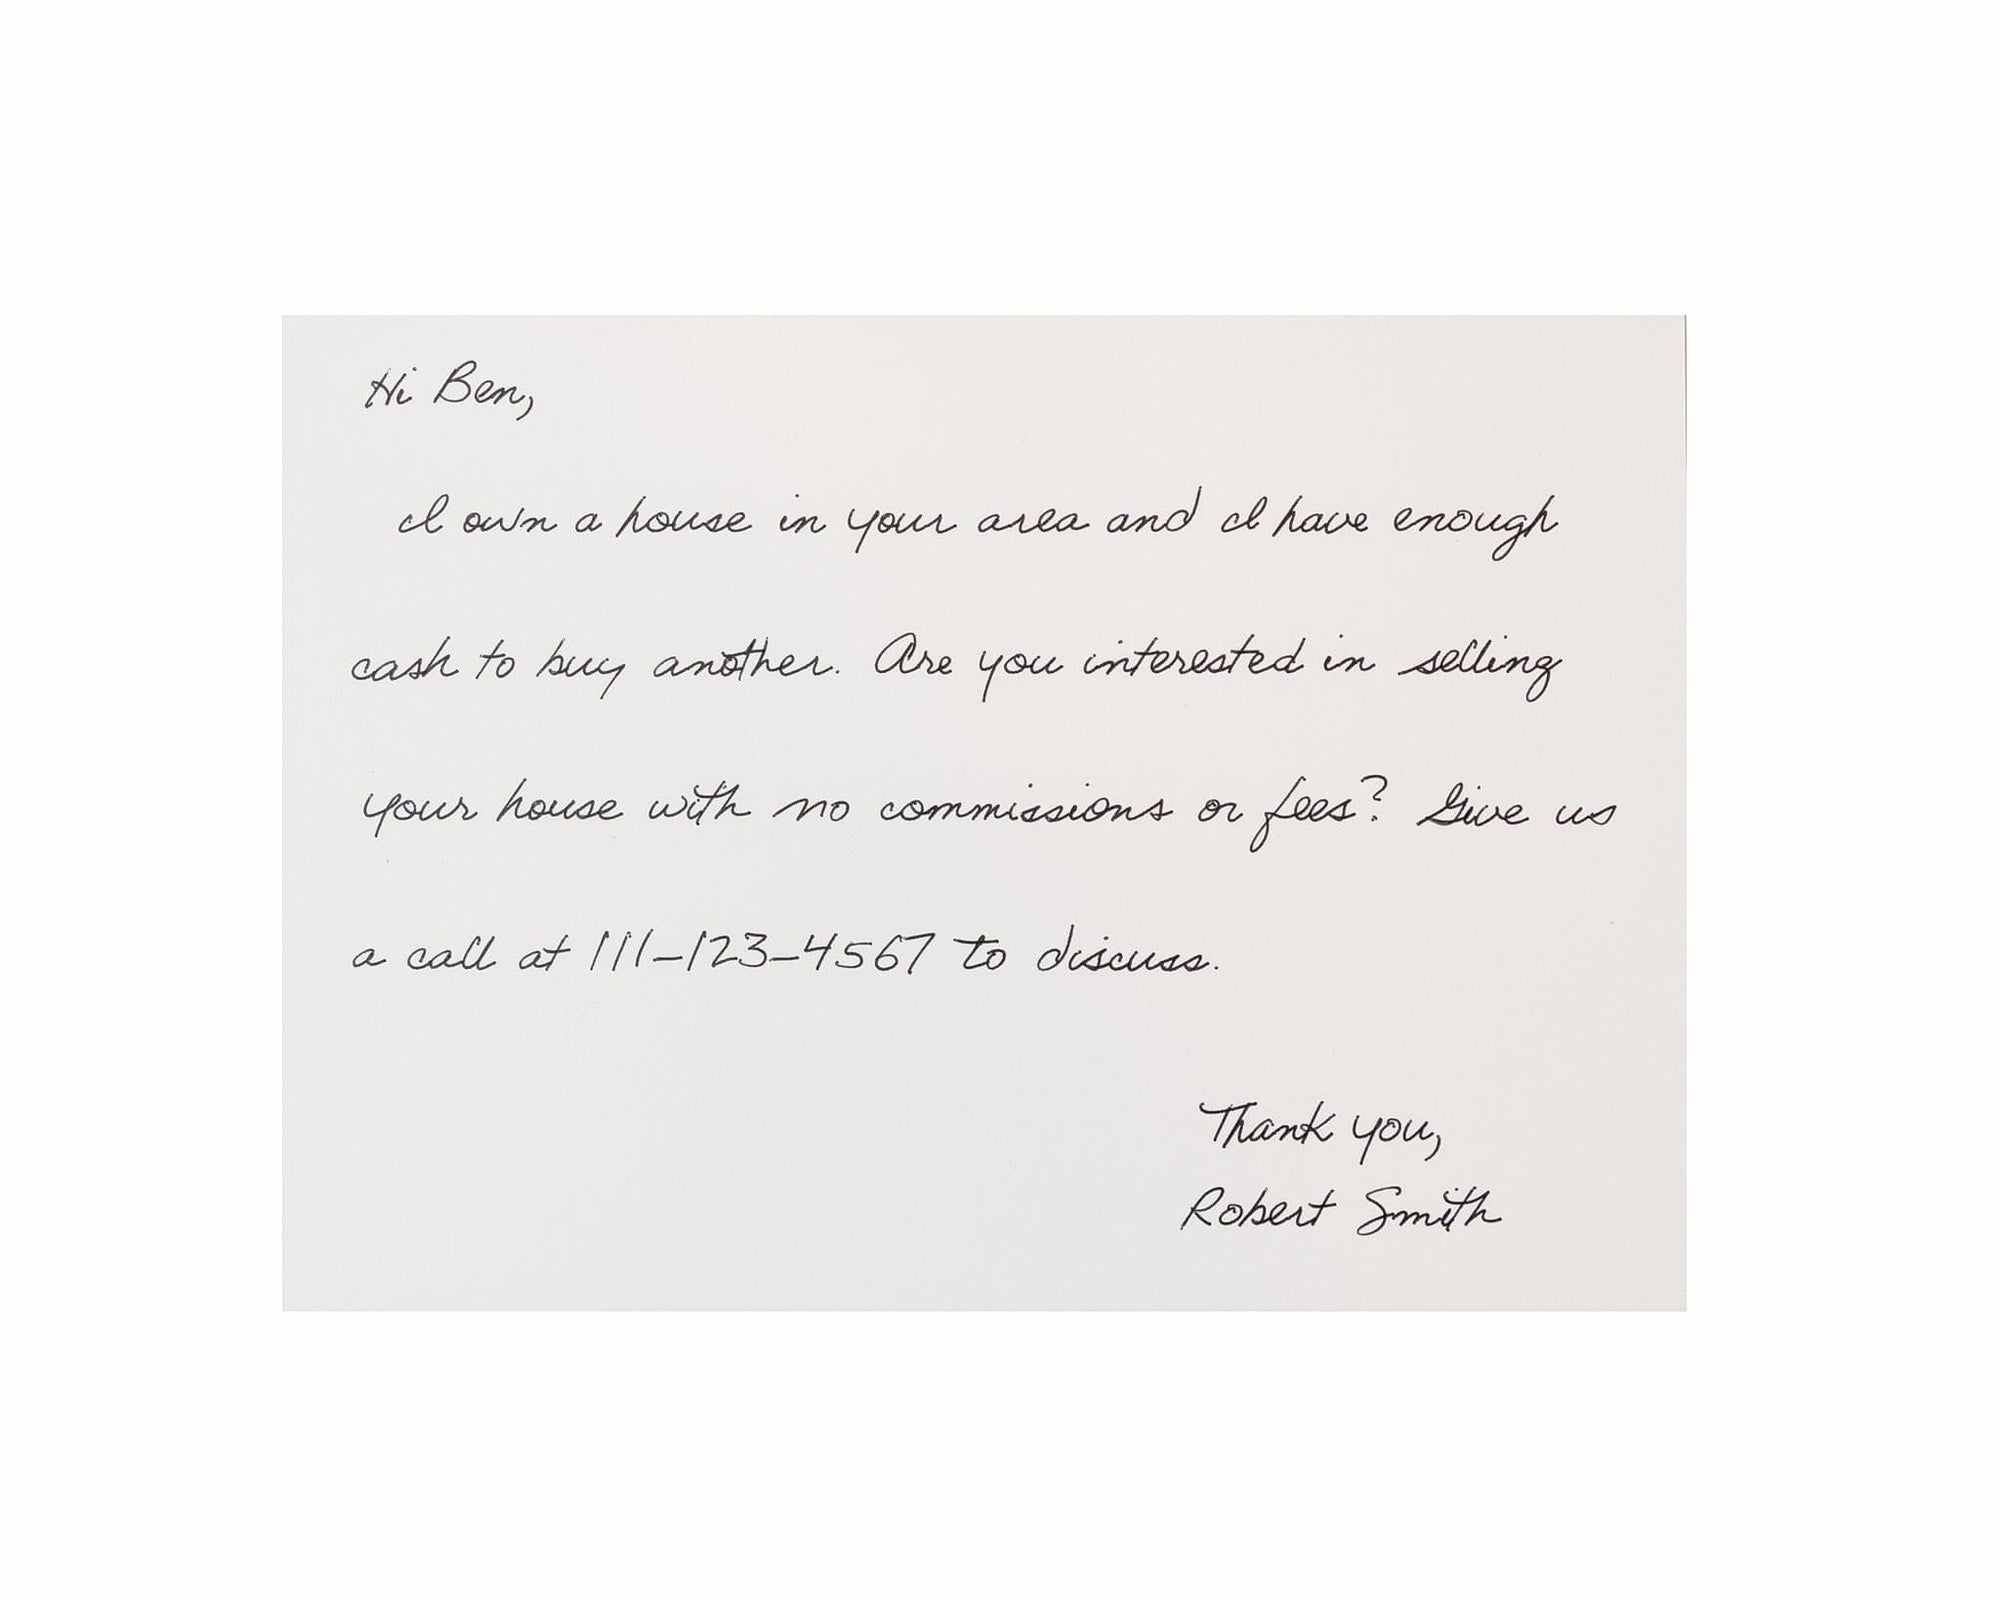 Hi Ben,
I own a house in your area and I have enough
cash to buy another. Are you interested in selling
your house with no commissions or fees? Give us
a call at 111-123-4567 to discuss.
Thank you,
Robert Smith